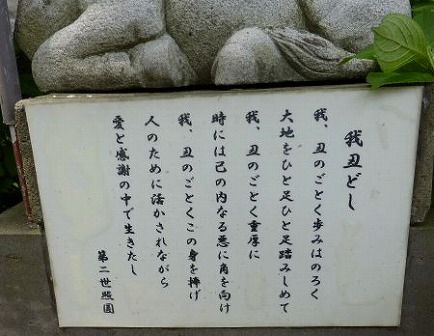 我丑どし
我、丑のごとく歩みはのろく
大地をひと足ひと足踏みしめて
我、丑のごとく重厚に
時には己の内なる悪に角を向け
我、丑のごとくこの身を捧げ
人のために活かされながら
愛と感謝の中で生きたし
第二世照圓